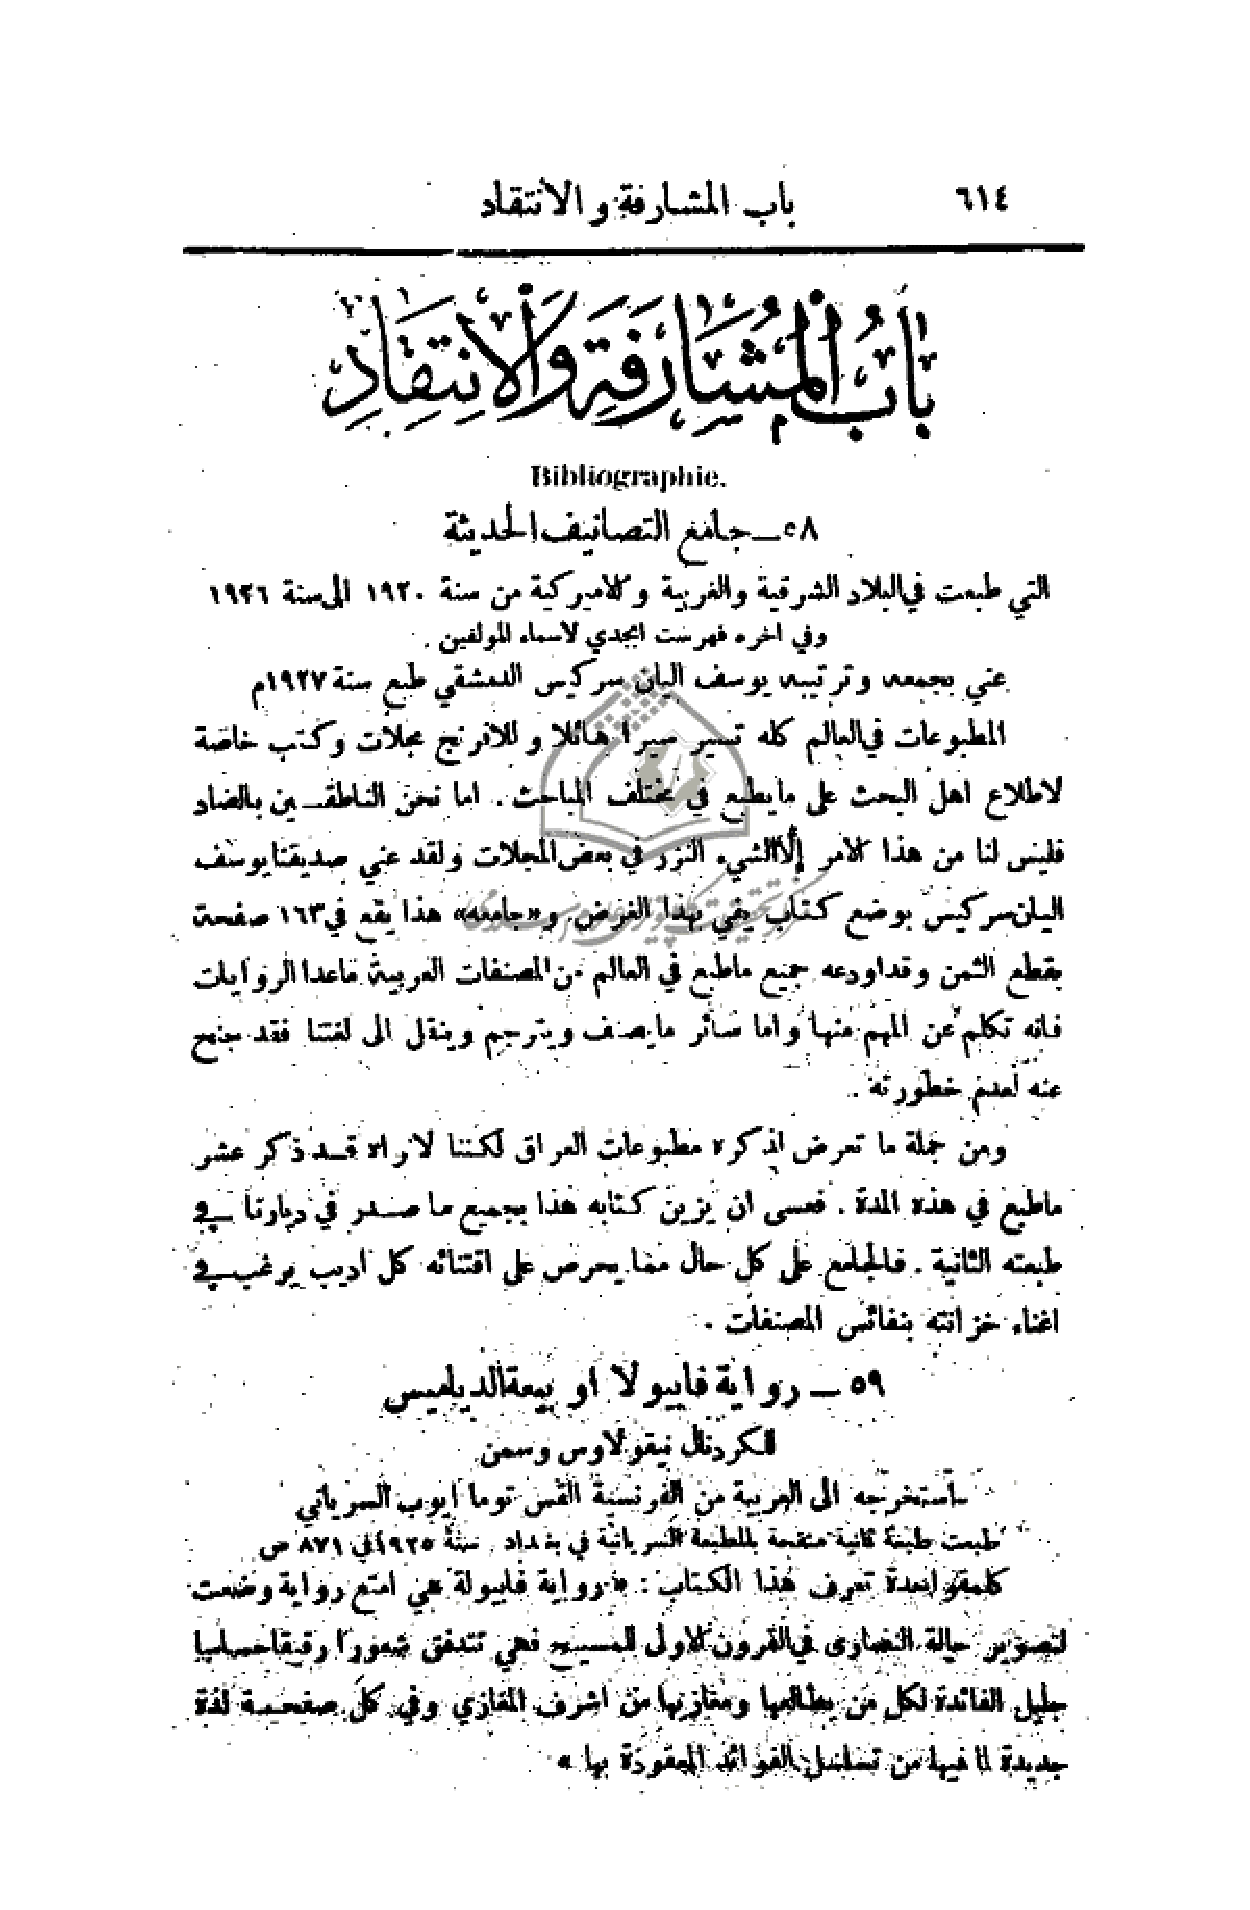 ٦١٤
باب المشارفة والانتقاد
بَابُ الْمُشَارَفَةِ وَالْاِنْتِقَادِ
Bibliographie.
٥٨ ــ جامع التصانيف الحديثة
التي طبعت في البلاد الشرقية والغربية والاميركية من سنة ١٩٢٠ الى سنة ١٩٢٦
وفي اخره فهرست ابجدي لاسماء المولفين .
عني بجمعه وترتيبه يوسف اليان سركيس الدمشقي طبع سنة ١٩٢٧م
المطبوعات في العالم كله تسير سيرا هائلا وللافرنج مجلات وكتب خاصة
لاطلاع اهل البحث على ما يطبع في مختلف المباحث . اما نحن الناطقــين بالضاد
فليس لنا من هذا الامر إلّا الشيء النزر في بعض المجلات ولقد عني صديقنا يوسف
اليان سركيس بوضع كتاب يفي بهذا الغرض و«جامعه» هذا يقع في ١٦٣ صفحة
بقطع الثمن وقد اودعه جميع ما طبع في العالم من المصنفات العربية ماعدا الروايات
فانه تكلم عن المهم منها واما سائر ما يصنف ويترجم وينقل الى لغتنا فقد جنح
عنه لعدم خطورته .
ومن جملة ما تعرض لذكره مطبوعات العراق لكننا لا نراه قــد ذكر عشر
ماطبع في هذه المدة . فعسى ان يزين كتابه هذا بجميع ما صــدر في ديارنا في
طبعته الثانية . فالجامع على كل حال مما يحرص على اقتنائه كل اديب يرغب في
اغناء خزانته بنفائس المصنفات .
٥٩ ــ رواية فابيولا او بيعة الدياميس
للكردنال نيقولاوس وسمن
استخرجه الى العربية من الفرنسية القس توما ايوب السرياني
طبعت طبعة ثانية منقحة بالمطبعة السريانية في بغداد سنة ١٩٢٥ في ٨٧١ ص
كلمة واحدة تعرف هذا الكتاب : « رواية فابيولة هي امتع رواية وضعت
لتصوير حالة النصارى في القرون الاولى للمسيح فهي تتدفق شعورا رقيقا حساسا
جليل الفائدة لكل من يطالعها ومغازيها من اشرف المغازي وفي كل صفحــة لذة
جديدة لما فيها من تسلسل الفوائد المعقودة بها »